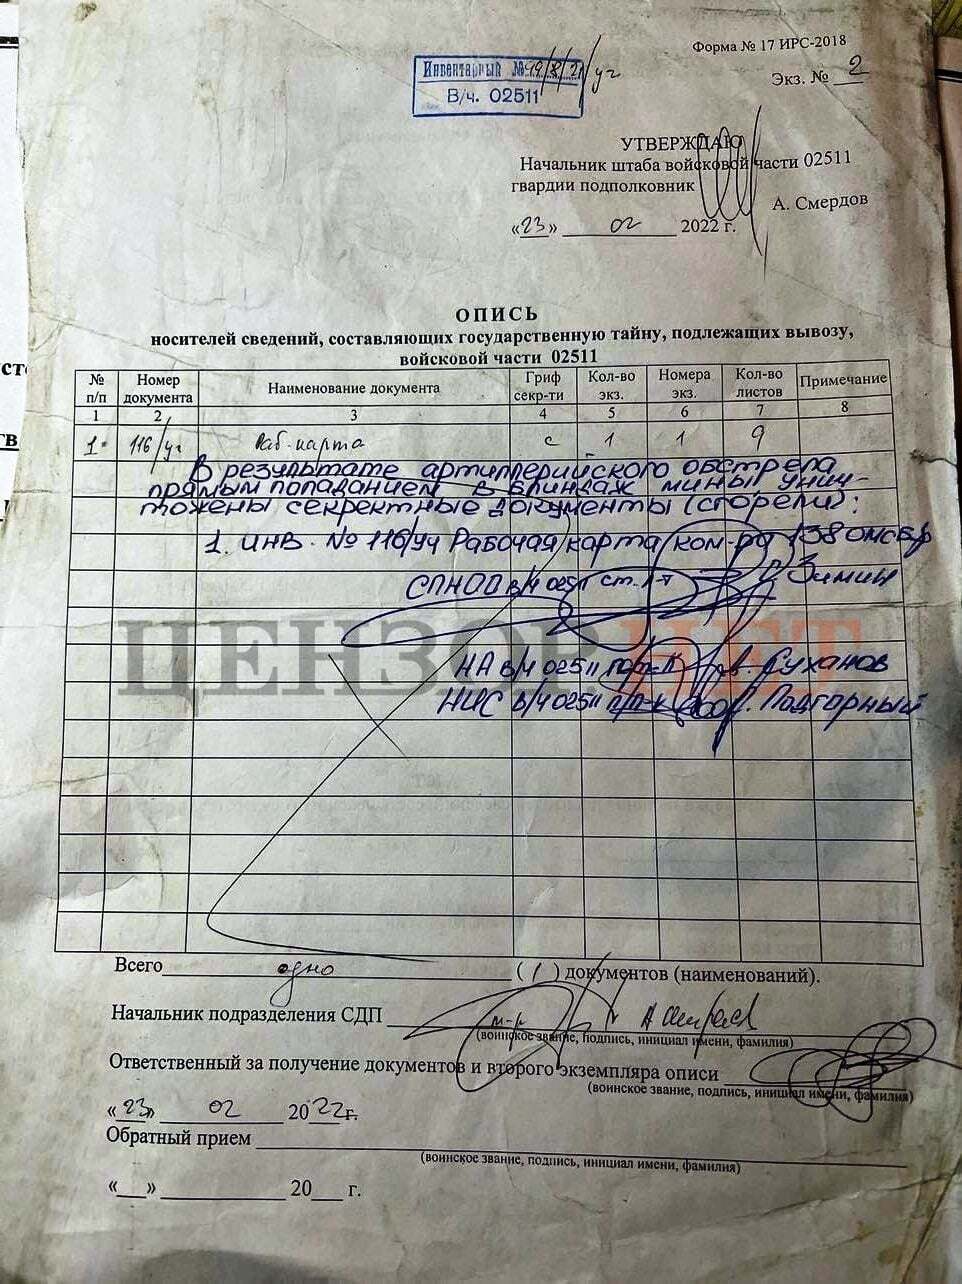 Форма № 17 ИРС-2018
Экз. № 2
Инвентарный №
В/ч. 02511
УТВЕРЖДАЮ
Начальник штаба войсковой части 02511
гвардии подполковник
А. Смердов
«23» 02 2022 г.
ОПИСЬ
носителей сведений, составляющих государственную тайну, подлежащих вывозу,
войсковой части 02511
№ п/п Номер документа Наименование документа Гриф секр-ти Кол-во экз. Номера экз. Кол-во листов Примечание
1 2 3 4 5 6 7 8
1. 116/уч Раб. карта с 1 1 9
В результате артиллерийского обстрела
прямым попаданием в блиндаж мины унич-
тожены секректные документы (сгорели):
1. инв. № 116/уч Рабочая карта ком-ра 138 омсбр
СПНОО в/ч 02511 ст. л-т Зимин
ЦЕНЗОР.НЕТ
НА в/ч 02511 п/п-к Суханов
НИС в/ч 02511 п/п-к Подгорный
Всего одно ( 1 ) документов (наименований).
Начальник подразделения СДП м-р
(воинское звание, подпись, инициал имени, фамилия)
Ответственный за получение документов и второго экземпляра описи
(воинское звание, подпись, инициал имени, фамилия)
«23» 02 2022 г.
Обратный прием
(воинское звание, подпись, инициал имени, фамилия)
«__» 20__ г.